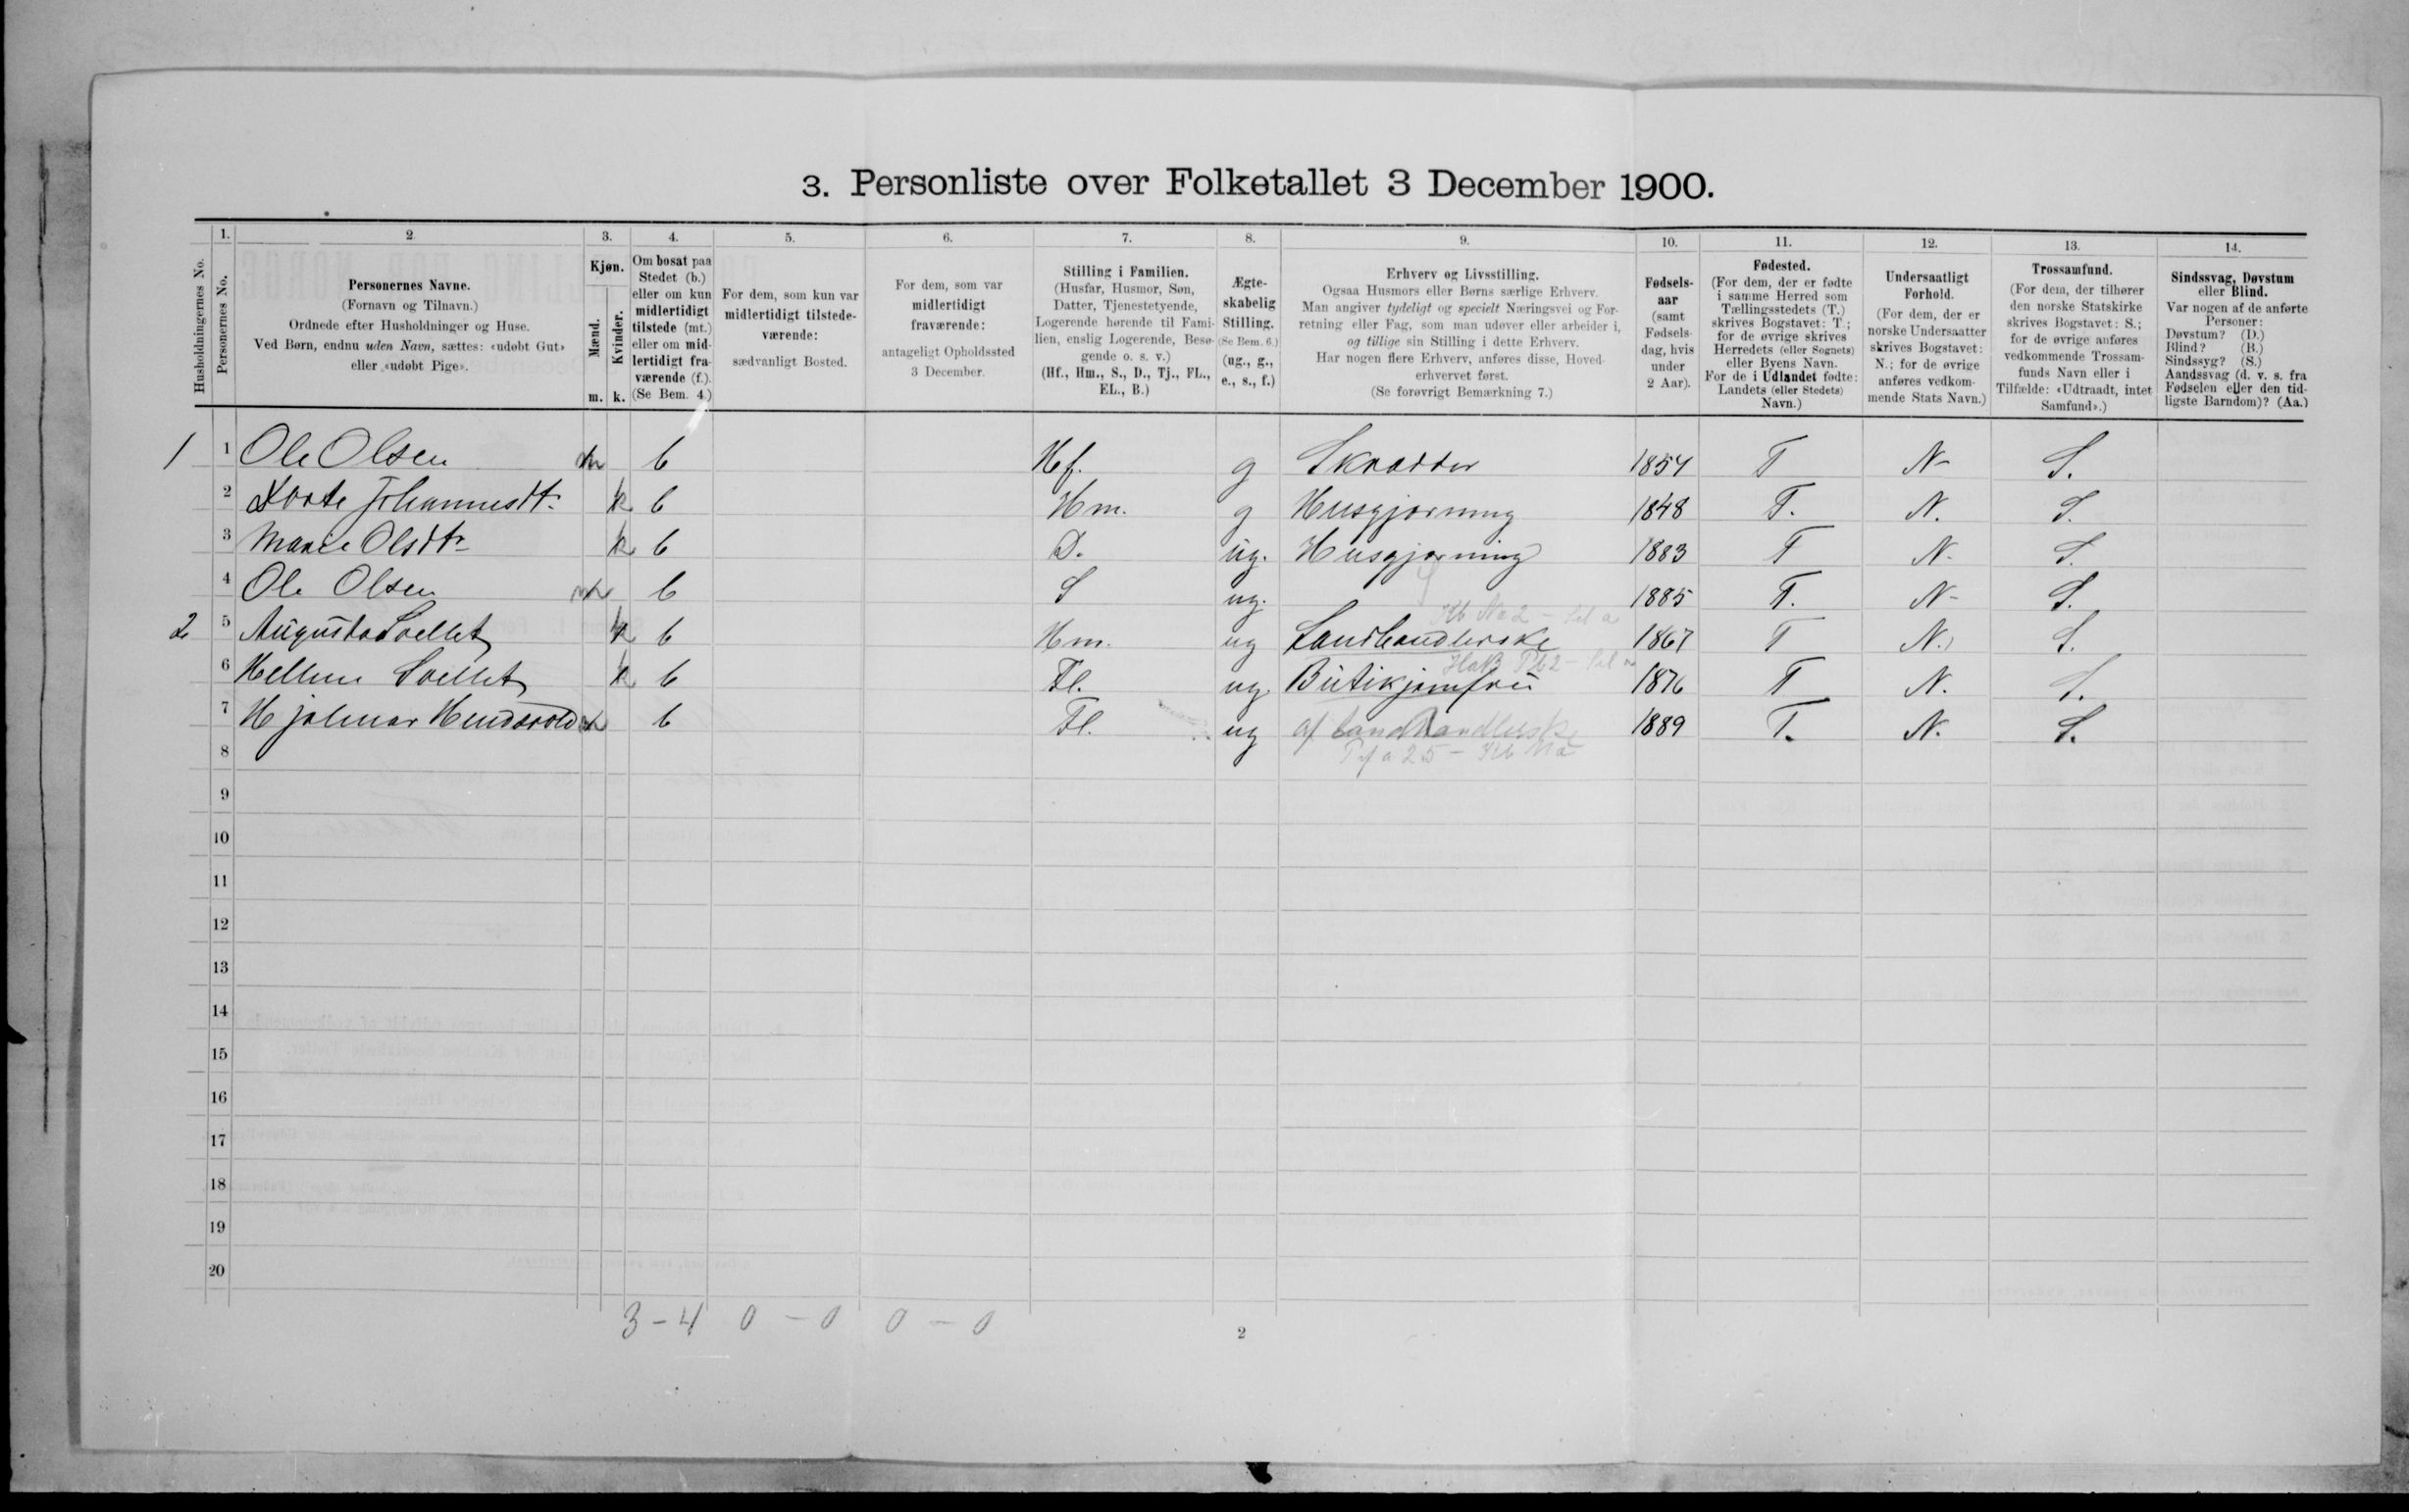 3. Personliste over Folketallet 3 December 1900.
1. 2. 3. 4. 5. 6. 7. 8. 9. 10. 11. 12. 13. 14.
Husholdningernes No.
Personernes No.
Personernes Navne.
(Fornavn og Tilnavn.)
Ordnede efter Husholdninger og Huse.
Ved Børn, endnu uden Navn, sættes: «udøbt Gut»
eller «udøbt Pige».
Kjøn.
Mænd.
Kvinder.
m. k.
Om bosat paa
Stedet (b.)
eller om kun
midlertidigt
tilstede (mt.)
eller om mid-
lertidigt fra-
værende (f.).
(Se Bem. 4.)
For dem, som kun var
midlertidigt tilstede-
værende:
sædvanligt Bosted.
For dem, som var
midlertidigt
fraværende:
antageligt Opholdssted
3 December.
Stilling i Familien.
(Husfar, Husmor, Søn,
Datter, Tjenestetyende,
Logerende hørende til Fami-
lien, enslig Logerende, Besø-
gende o. s. v.)
(Hf., Hm., S., D., Tj., FL.,
EL., B.)
Ægte-
skabelig
Stilling.
(Se Bem. 6.)
(ug., g.,
e., s., f.)
Erhverv og Livsstilling.
Ogsaa Husmors eller Børns særlige Erhverv.
Man angiver tydeligt og specielt Næringsvei og For-
retning eller Fag, som man udøver eller arbeider i,
og tillige sin Stilling i dette Erhverv.
Har nogen flere Erhverv, anføres disse, Hoved-
erhvervet først.
(Se forøvrigt Bemærkning 7.)
Fødsels-
aar
(samt
Fødsels-
dag, hvis
under
2 Aar).
Fødested.
(For dem, der er fødte
i samme Herred som
Tællingsstedets (T.)
skrives Bogstavet: T.;
for de øvrige skrives
Herredets (eller Sognets)
eller Byens Navn.
For de i Udlandet fødte:
Landets (eller Stedets)
Navn.)
Undersaatligt
Forhold.
(For dem, der er
norske Undersaatter
skrives Bogstavet:
N.; for de øvrige
anføres vedkom-
mende Stats Navn.)
Trossamfund.
(For dem, der tilhører
den norske Statskirke
skrives Bogstavet: S.;
for de øvrige anføres
vedkommende Trossam-
funds Navn eller i
Tilfælde: «Udtraadt, intet
Samfund».)
Sindssvag, Døvstum
eller Blind.
Var nogen af de anførte
Personer:
Døvstum? (D.)
Blind? (B.)
Sindssyg? (S.)
Aandssvag (d. v. s. fra
Fødselen eller den tid-
ligste Barndom)? (Aa.)
1 1 Ole Olsen m b Hf. g Skrædder 1854 T N S.
2 Dorte Johannesdt. k b Hm. g Husgjerning 1848 T. N. S.
3 Marie Olsdtr k b D. ug. Husgjerning 1883 T N. S.
4 Ole Olsen m b S ug. 1885 T. N S.
2 5 Augusta k b Hm. ug Landhandlerske 1867 T N. S.
6 k b Fl. ug. Butikjomfru 1876 T N. S.
7 Hjalmar m b Fl. ug af Landhandlerske 1889 T. N. S.
8
9
10
11
12
13
14
15
16
17
18
19
20
3 - 4 0 - 0 0 - 0
2